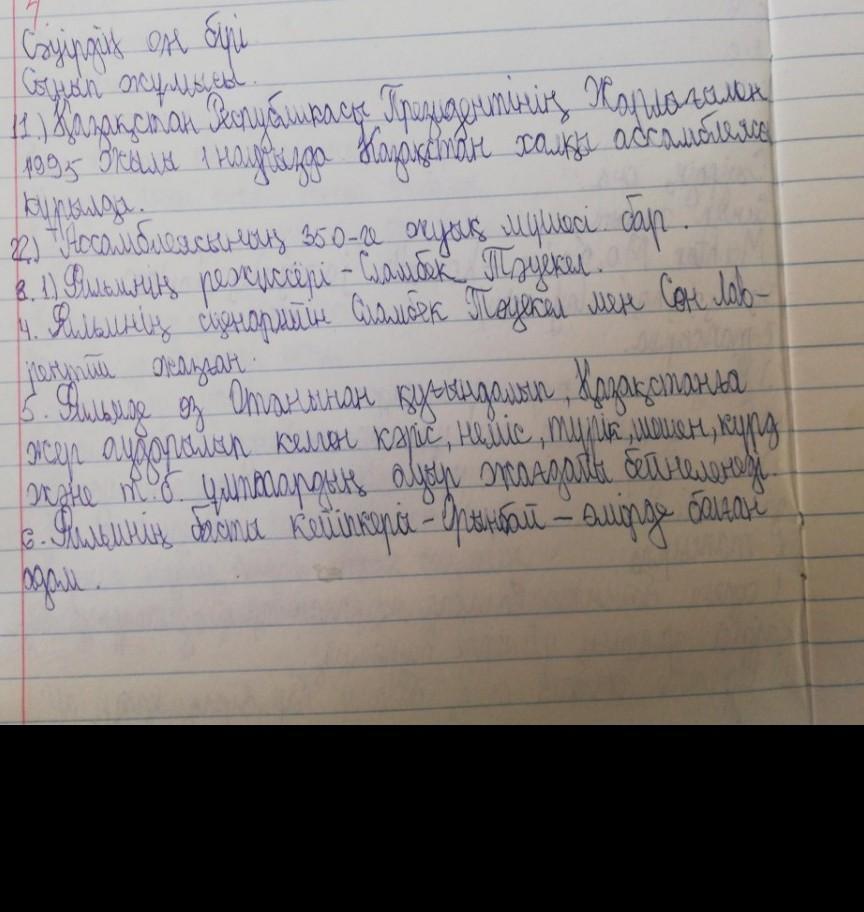 Сәуірдің он бірі
Сынып жұмысы.
1.) Қазақстан Республикасы Президентінің Жарлығымен
1995 жылы 1 наурызда Қазақстан халқы ассамблеясы
құрылды.
2.) Ассамблеясының 350-ге жуық мүшесі бар.
3. 1) Фильмнің режиссёрі - Сламбек Тәуекел.
4. Фильмнің сценарийін Сламбек Тәуекел мен Сон Лав-
рентий жазған.
5. Фильмде өз Отанынан қуғындалып, Қазақстанға
жер аударылып келген кәріс, неміс, түрік, шешен, күрд
және т.б. ұлттардың ауыр жағдайы бейнеленеді.
6. Фильмнің басты кейіпкері - Орынбай - өмірде болған
адам.